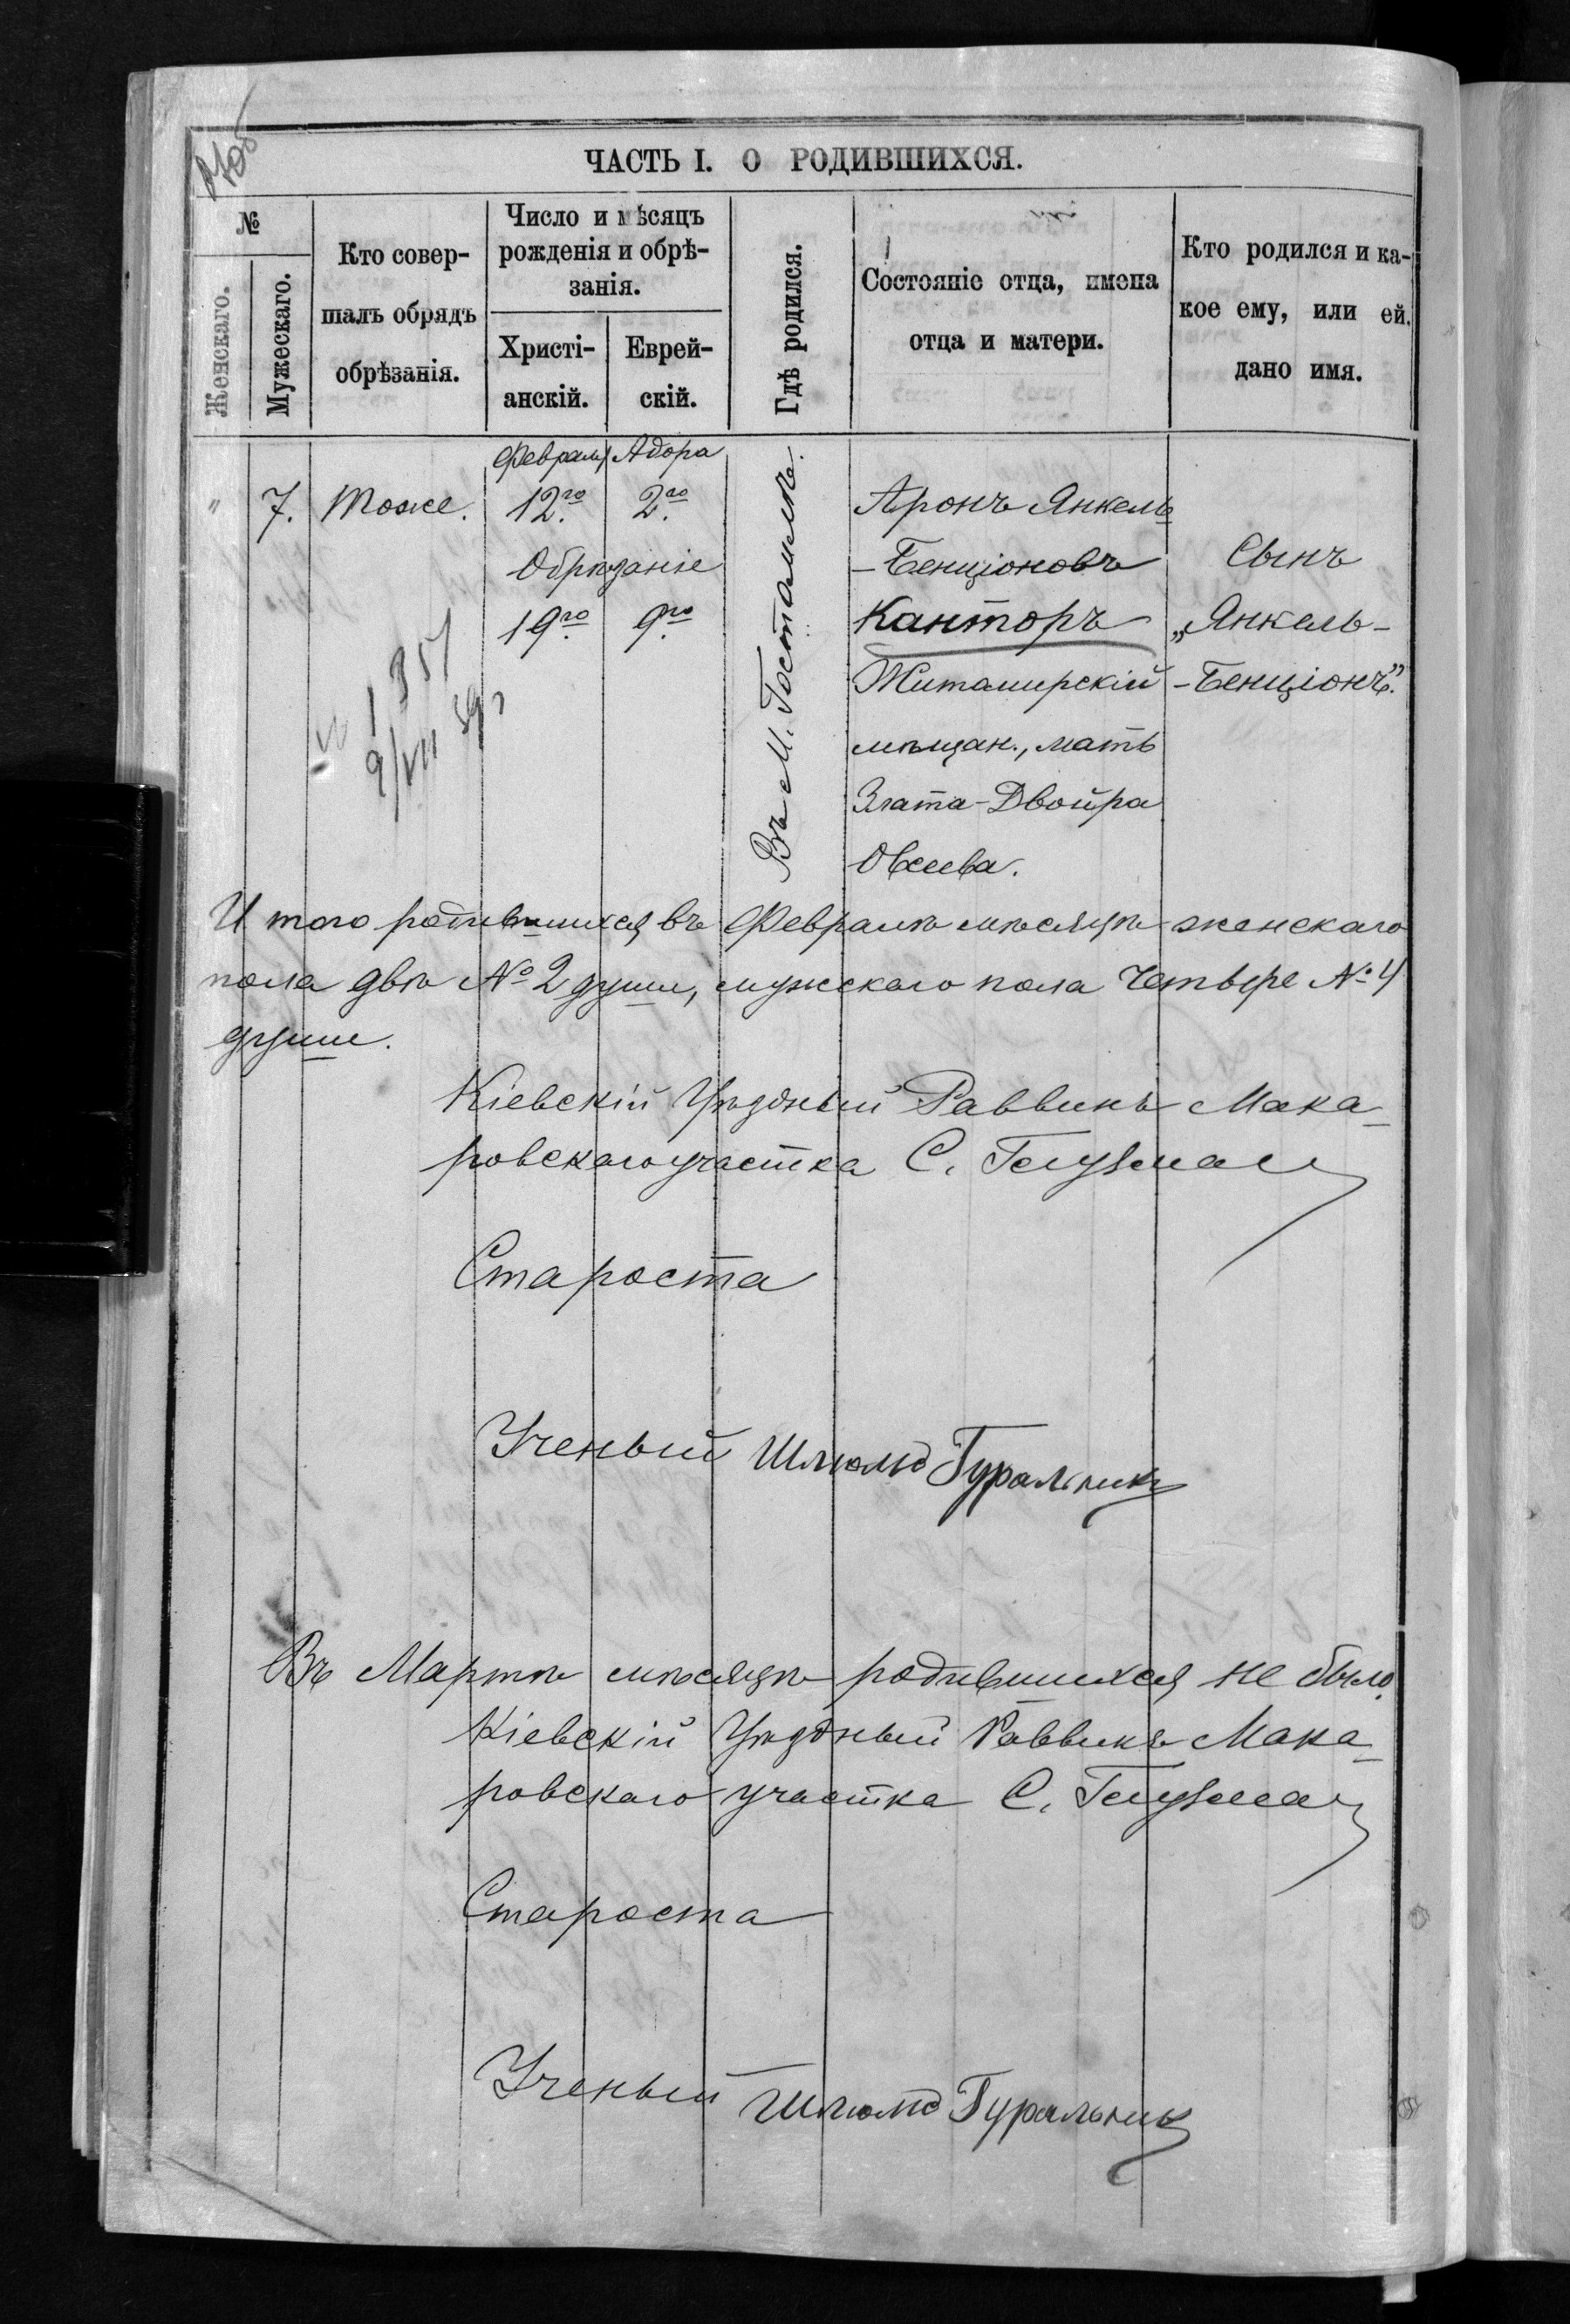 ЧАСТЬ I. О РОДИВШИХСЯ.
№
Женскаго.
Мужескаго.
Кто совер-
шалъ обрядъ
обрѣзанія.
Число и мѣсяцъ
рожденія и обрѣ-
занія.
Христі-
анскій.
Еврей-
скій.
Гдѣ родился.
Состояніе отца, имена
отца и матери.
Кто родился и ка-
кое ему, или ей.
дано имя.
Февраля Адора
" 7. Тоже. 12го 2го
Обрѣзаніе
19го 9го
Въ М. Гостомлѣ.
Аронъ Янкель
-Бенціоновъ
Канторъ
Житамирскій
мѣщан., мать
Злата-Двойра
Овсеева.
Сынъ
„Янкель-
-Бенціонъ".
1357
9/VII
И того родившихся въ Февралѣ мѣсяцѣ женскаго
пола двѣ № 2 души, мужскаго пола Четвере № 4
души.
Кіевскій Уѣздный Раввинъ Мака-
ровскаго участка С.
Староста
Ученый Шлюмо Гуральник
Въ Мартѣ мѣсяцѣ родившихся не было.
Кіевскій Уѣздный Раввинъ Мака-
ровскаго участка С.
Староста
Ученый Шлюмо Гуральник